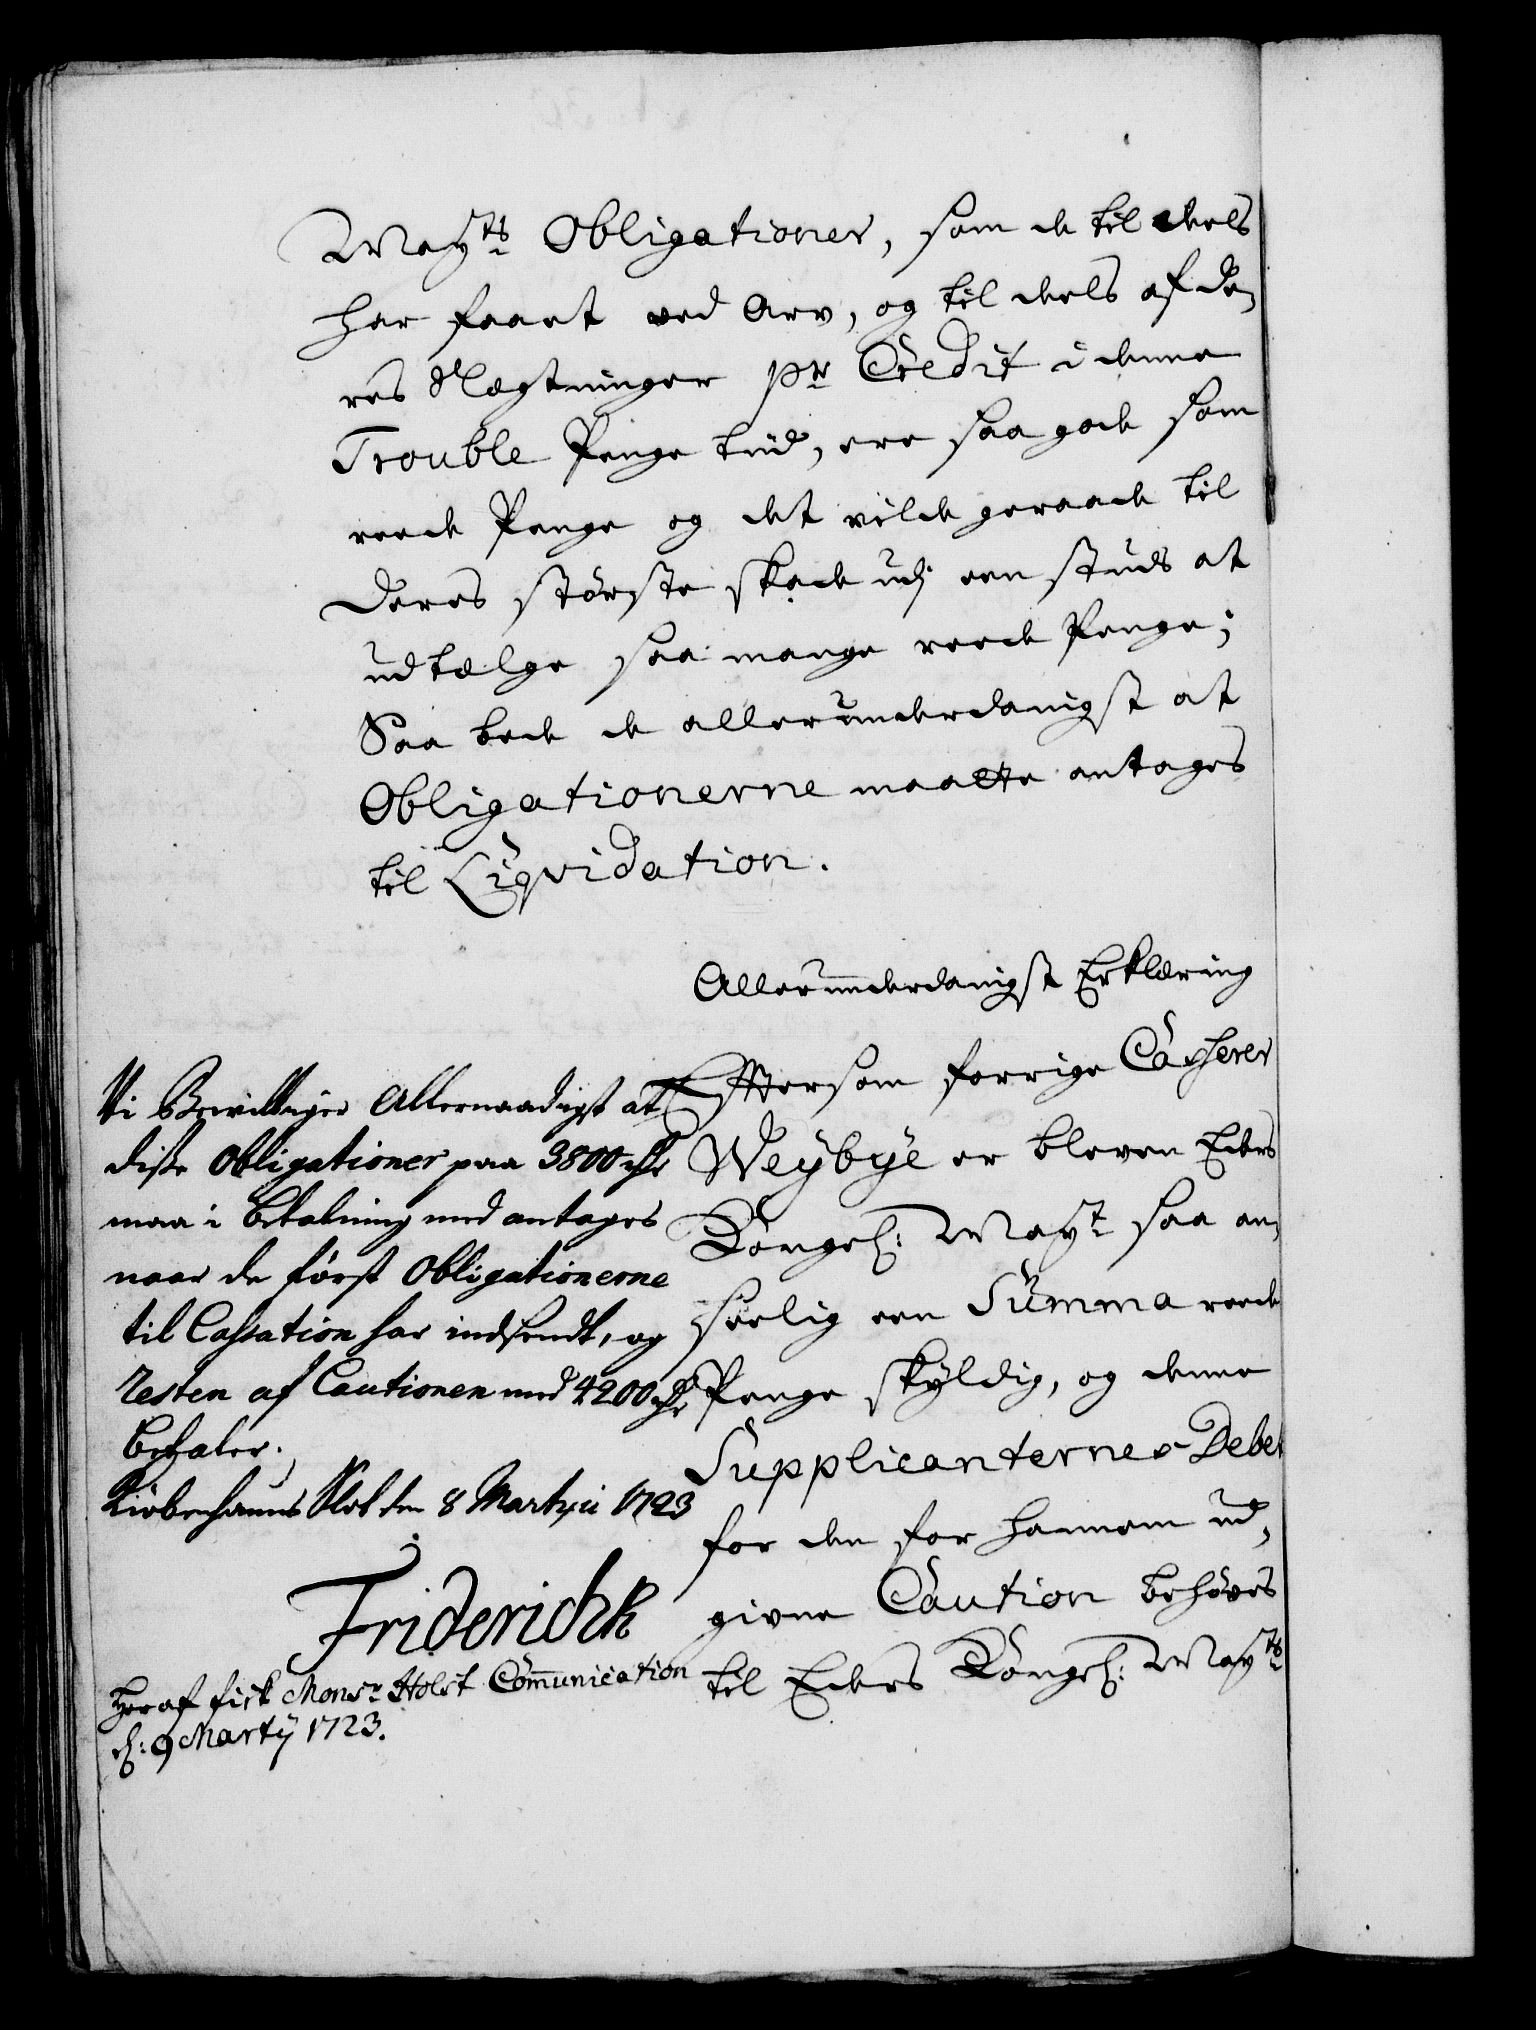 Mayts Obligationer, som de til deels
har faaet ved Arv, og til deels af de„
res Slægtninger pr Credit i denne
Trouble Penge tiid, ere saa gode som
reede Penge og det vilde geraade til
deres störste skade udj een studs at
udtælge saa mange reede Penge;
Saa bede de allerunderdanigst at
Obligationerne maatte antages
til Liqvidation.
Allerunderdanigst Erklæring
Efftersom forrige Casserer
Weybye er bleven Eders
Kongel: Mayt saa an„
seelig een Summa reede
Penge skyldig, og denne
Supplicanternes Debet
for den for hannem ud„
givne Caution behöves
til Eders Kongel: Mayts
Vi Bevilliger Allernaadigst at
disse Obligationer paa 3800 rdr
maa i Betalning med antages
naar de först Obligationerne
til Cassation har indsendt, og
resten af Cautionen med 4200 rdr
betaler.
Kiöbenhauns Slot den 8 Martyii 1723
Friderich R
Heraf fick Monsr Holst Communication
d: 9 Marty 1723.